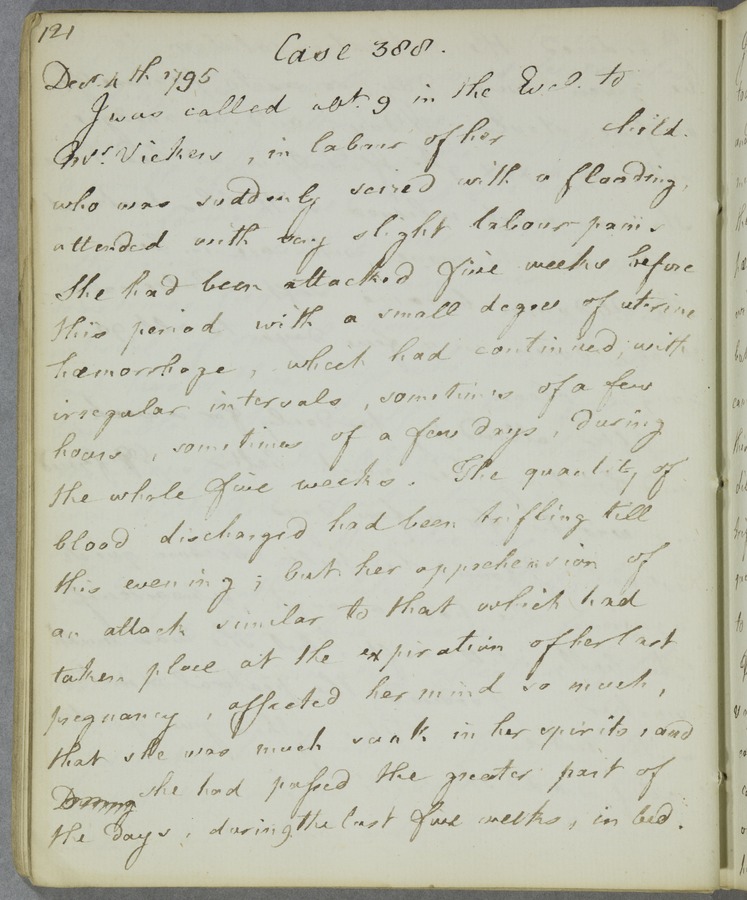 121
Case 388.
Decr. 4th 1795
I was called abt. 9 in the Eveg. to
Mrs. Vickers, in labour of her child.
who was suddenly seized with a flooding,
attended with very slight labour pains
She had been attacked five weeks before
this period with a small degree of uterine
hæmorrhage, which had continued, with
irregular intervals, sometimes of a few
hours, sometimes of a few days, during
the whole five weeks. The quantity of
blood discharged had been trifling till
this evening; but her apprehension of
an attack similar to that which had
taken place at the expiration of her last
pregnancy, affected her mind so much,
that she was much sunk in her spirits, and
During she had passed the greater part of
the days, during the last five weeks, in bed.